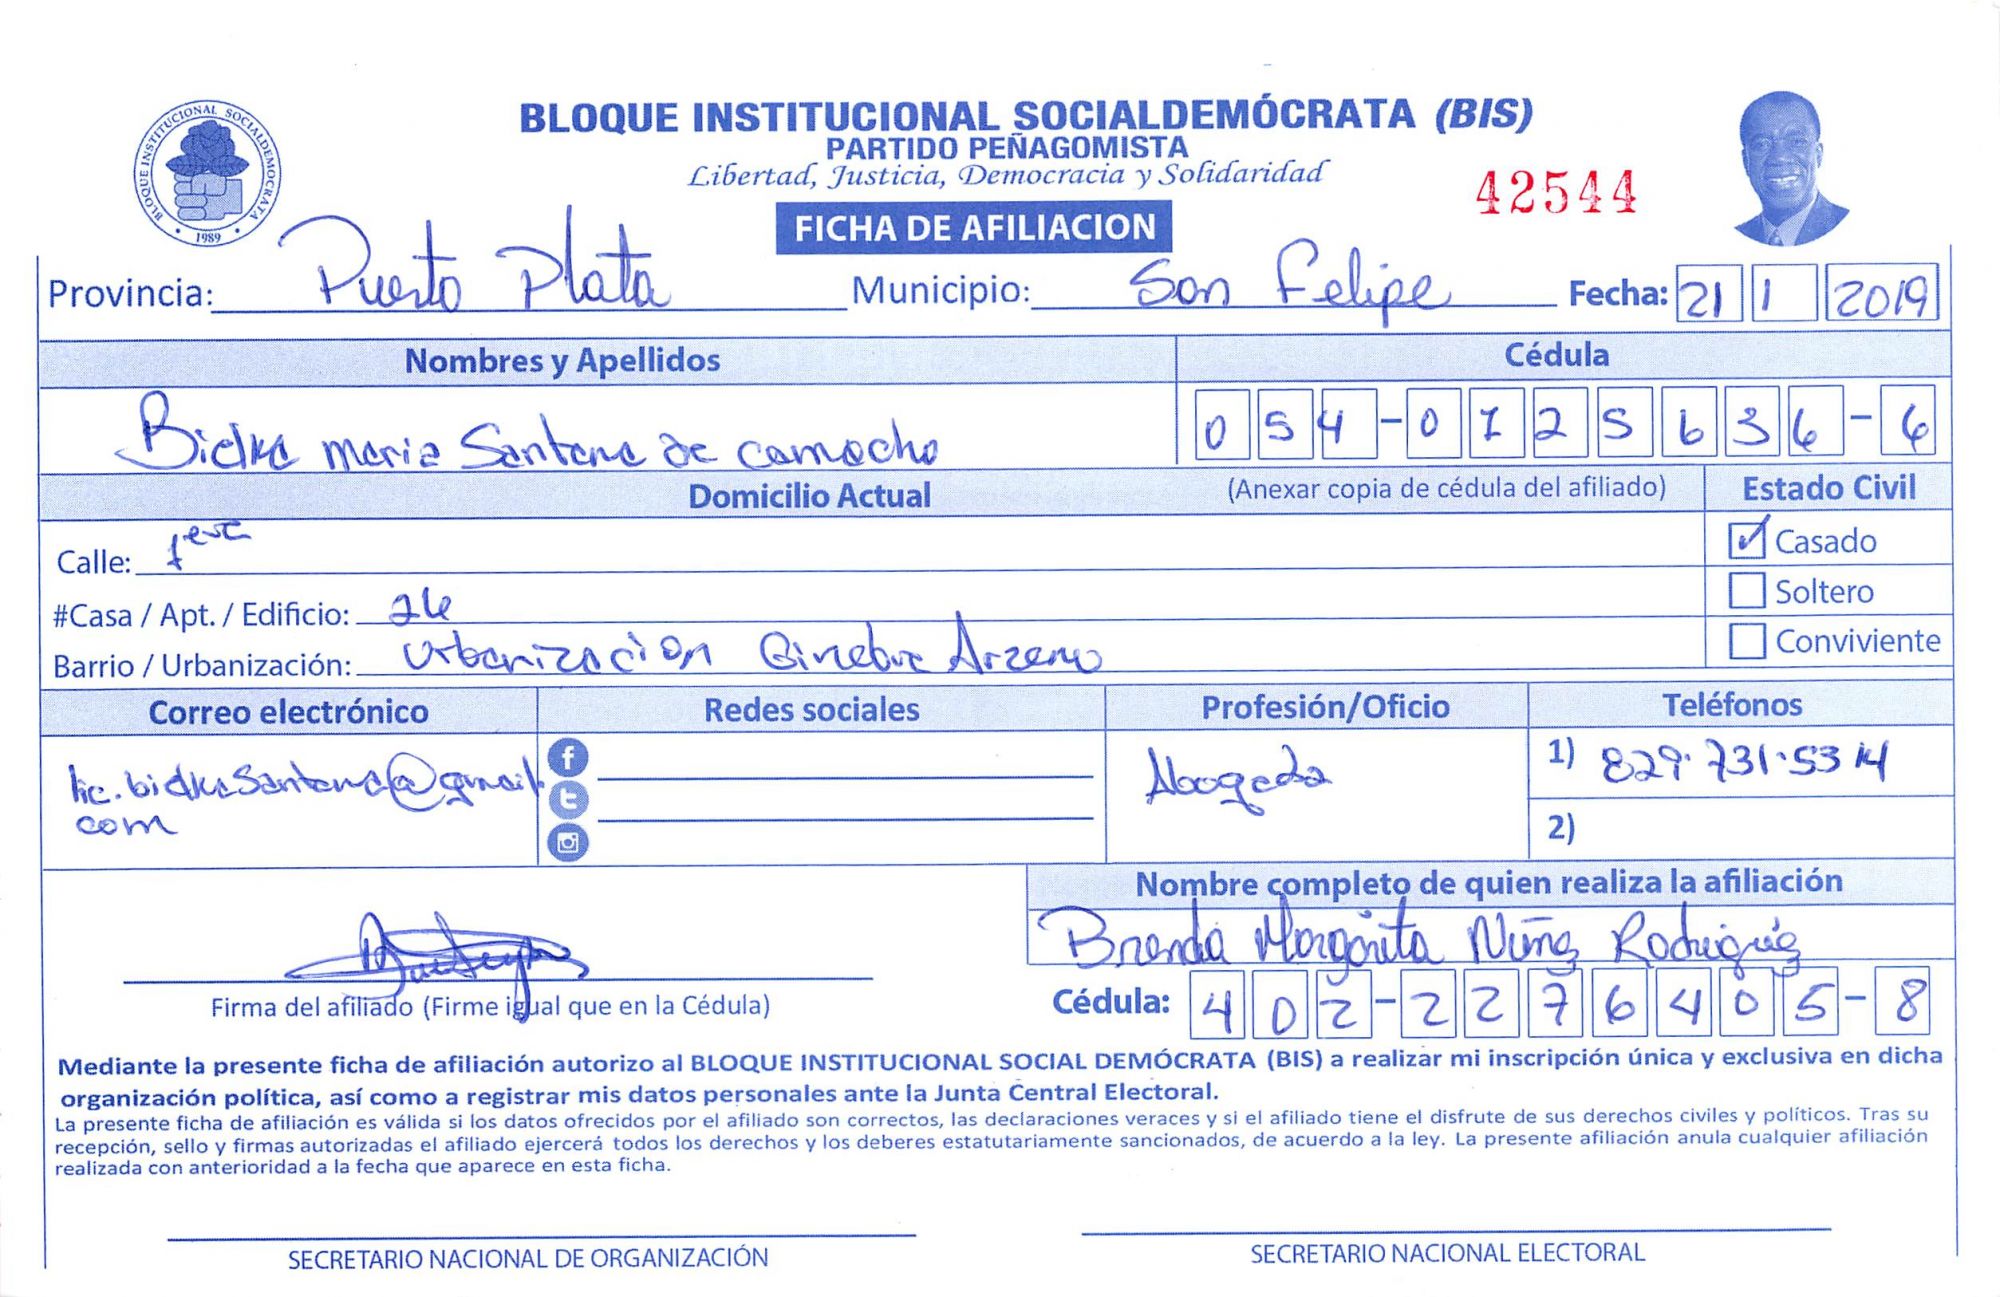 BLOQUE INSTITUCIONAL SOCIALDEMOCRATA
1989
BLOQUE INSTITUCIONAL SOCIALDEMÓCRATA (BIS)
PARTIDO PEÑAGOMISTA
Libertad, Justicia, Democracia y Solidaridad
42544
FICHA DE AFILIACION
Provincia: Puerto Plata Municipio: San Felipe Fecha: 21 1 2019
Nombres y Apellidos Cédula
Bielka Maria Santana de Camacho 054-0125636-6
Domicilio Actual (Anexar copia de cédula del afiliado) Estado Civil
Calle: 1era ✓ Casado
#Casa / Apt. / Edificio: 26 Soltero
Barrio / Urbanización: Urbanización Ginebra Arzeno Conviviente
Correo electrónico Redes sociales Profesión/Oficio Teléfonos
lic.bielkasantana@gmail. Abogada 1) 829.731.5314
com 2)
Nombre completo de quien realiza la afiliación
Brenda Margarita Núñez Rodríguez
Firma del afiliado (Firme igual que en la Cédula) Cédula: 402-2276405-8
Mediante la presente ficha de afiliación autorizo al BLOQUE INSTITUCIONAL SOCIAL DEMÓCRATA (BIS) a realizar mi inscripción única y exclusiva en dicha
organización política, así como a registrar mis datos personales ante la Junta Central Electoral.
La presente ficha de afiliación es válida si los datos ofrecidos por el afiliado son correctos, las declaraciones veraces y si el afiliado tiene el disfrute de sus derechos civiles y políticos. Tras su
recepción, sello y firmas autorizadas el afiliado ejercerá todos los derechos y los deberes estatutariamente sancionados, de acuerdo a la ley. La presente afiliación anula cualquier afiliación
realizada con anterioridad a la fecha que aparece en esta ficha.
SECRETARIO NACIONAL DE ORGANIZACIÓN SECRETARIO NACIONAL ELECTORAL